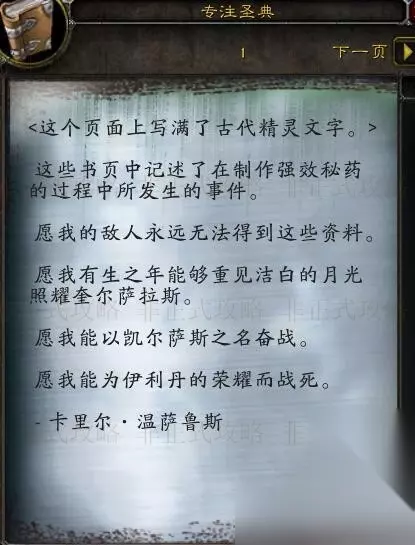 专注圣典
1 下一页
<这个页面上写满了古代精灵文字。>
这些书页中记述了在制作强效秘药
的过程中所发生的事件。
愿我的敌人永远无法得到这些资料。
愿我有生之年能够重见洁白的月光
照耀奎尔萨拉斯。
愿我能以凯尔萨斯之名奋战。
愿我能为伊利丹的荣耀而战死。
- 卡里尔·温萨鲁斯